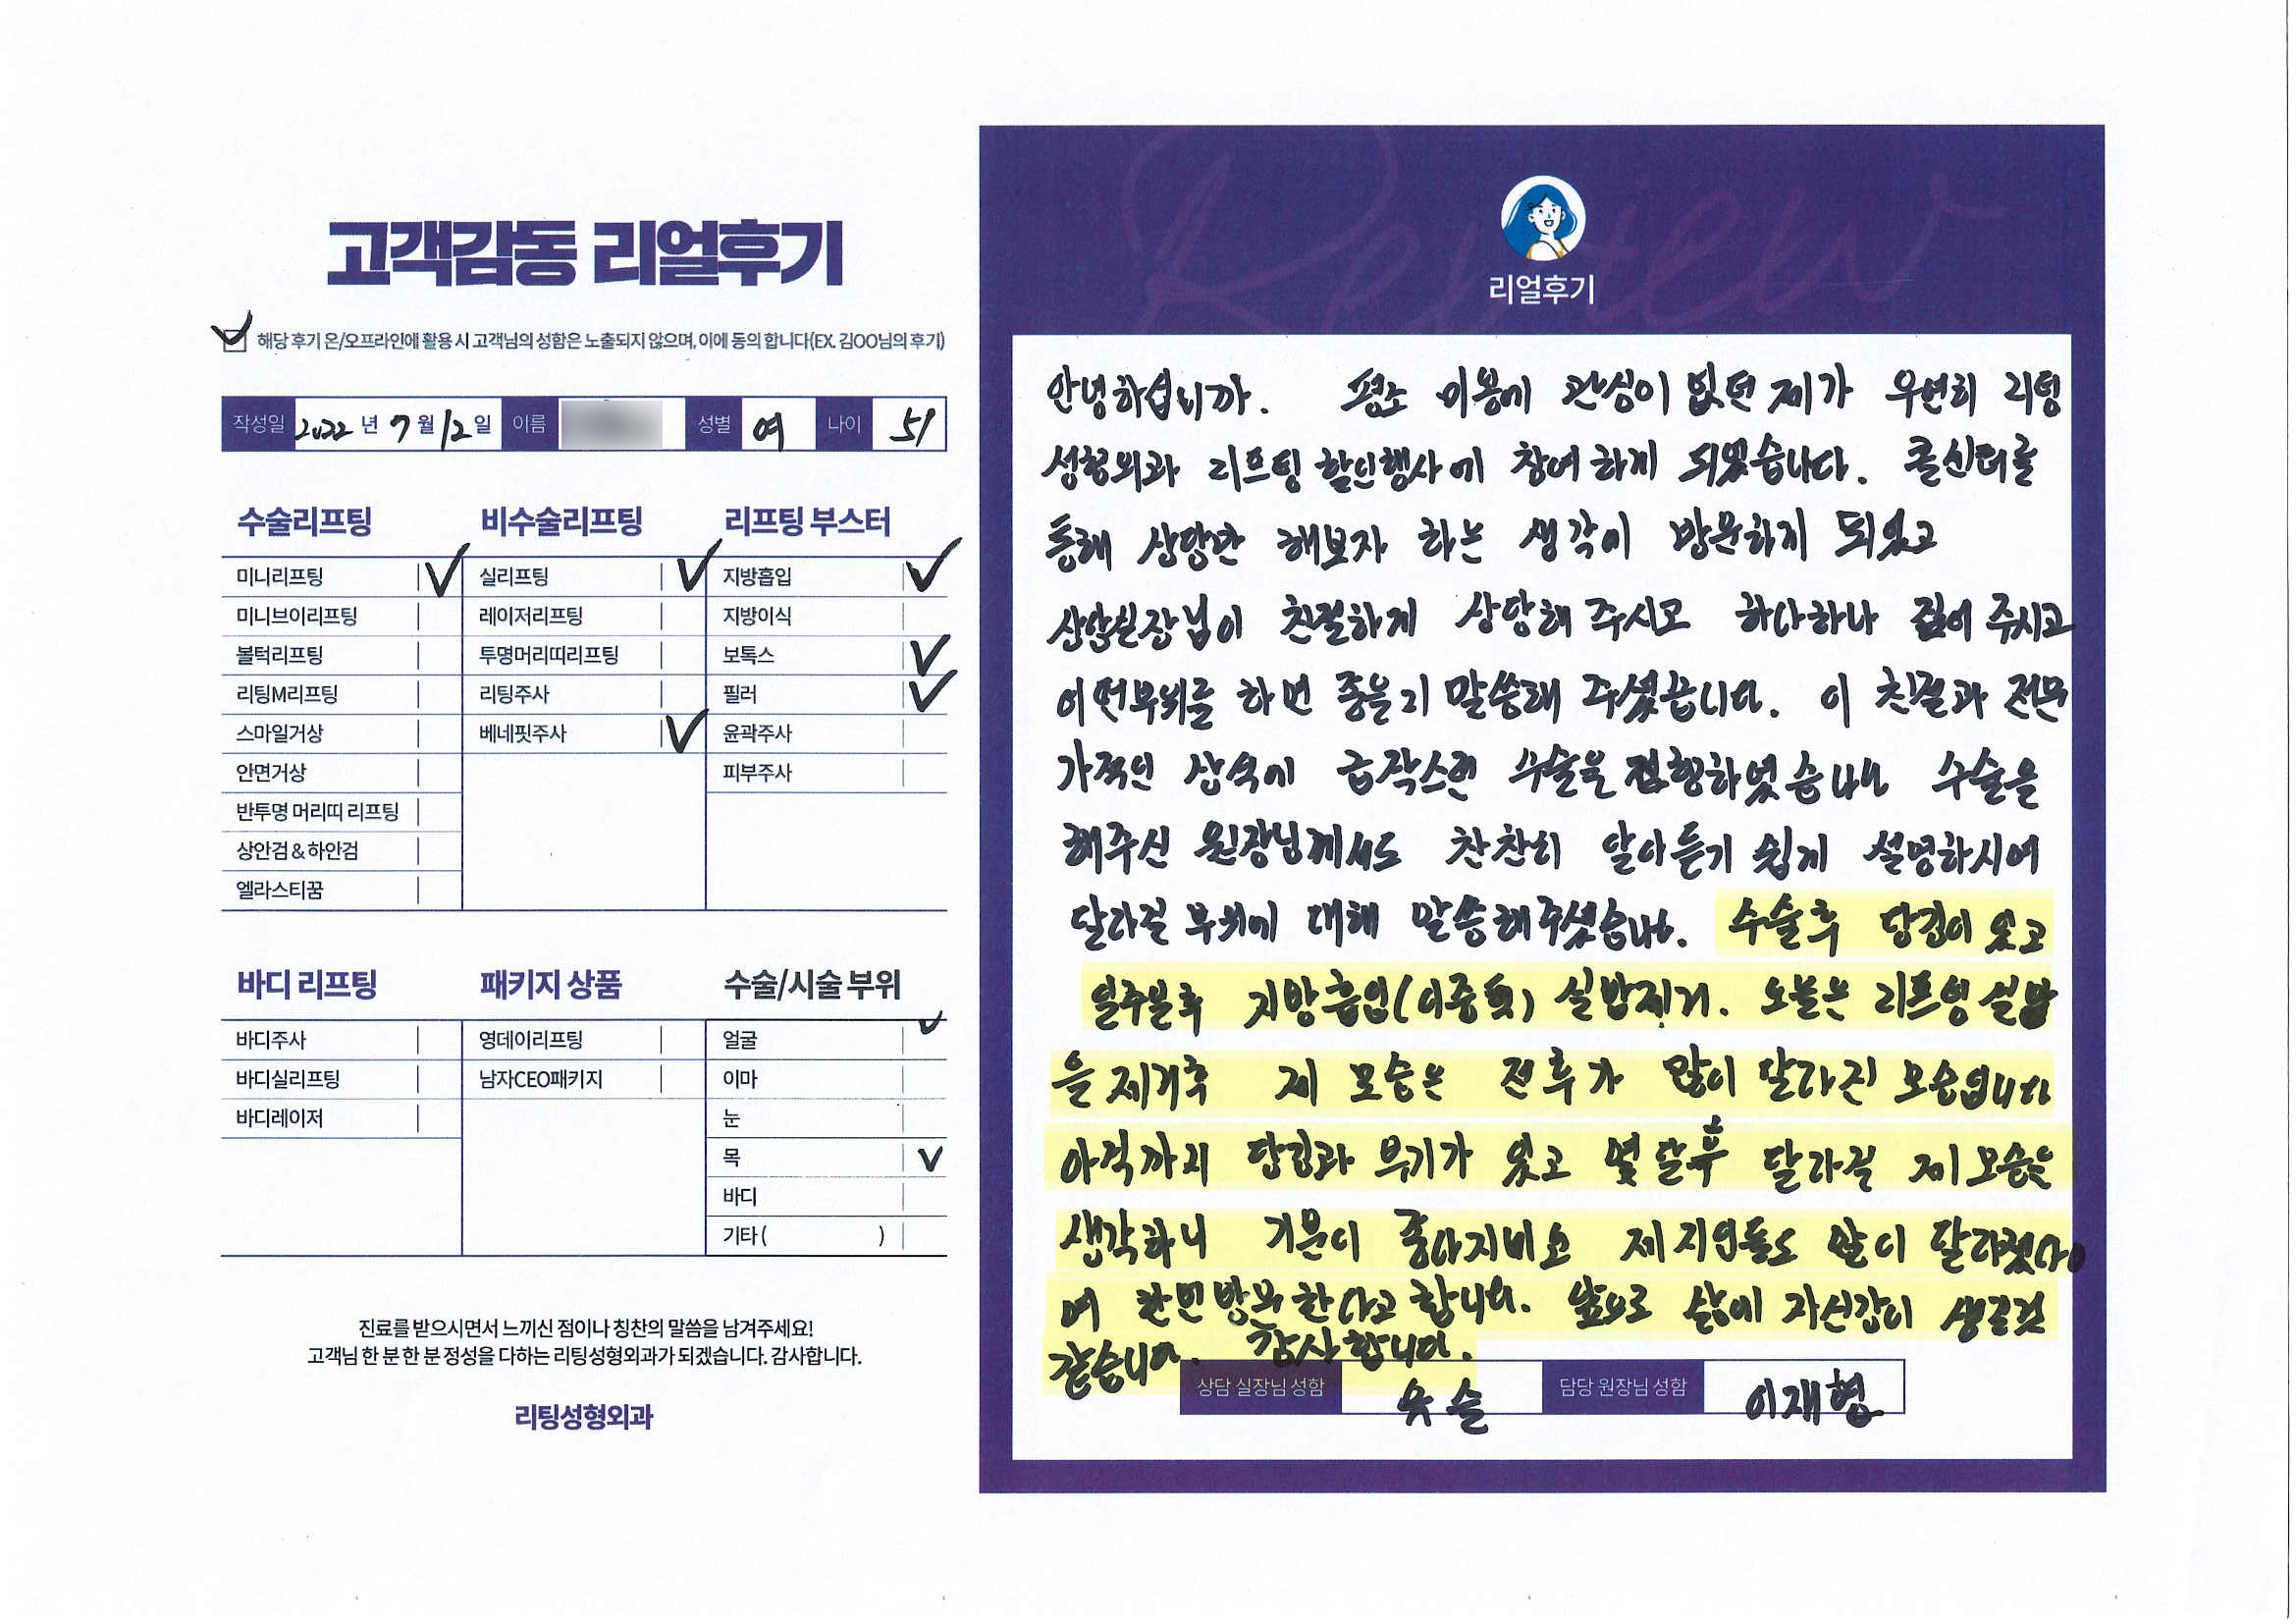 고객감동 리얼후기
해당 후기 온/오프라인에 활용 시 고객님의 성함은 노출되지 않으며, 이에 동의 합니다(EX. 김OO님의 후기)
작성일 2022 년 7 월 12 일 이름 성별 여 나이 51
수술리프팅 비수술리프팅 리프팅 부스터
미니리프팅 실리프팅 지방흡입
미니브이리프팅 레이저리프팅 지방이식
볼턱리프팅 투명머리띠리프팅 보톡스
리팅M리프팅 리팅주사 필러
스마일거상 베네핏주사 윤곽주사
안면거상 피부주사
반투명 머리띠 리프팅
상안검 & 하안검
엘라스티꿈
바디 리프팅 패키지 상품 수술/시술 부위
바디주사 영데이리프팅 얼굴
바디실리프팅 남자CEO패키지 이마
바디레이저 눈
목
바디
기타 ( )
진료를 받으시면서 느끼신 점이나 칭찬의 말씀을 남겨주세요!
고객님 한 분 한 분 정성을 다하는 리팅성형외과가 되겠습니다. 감사합니다.
리팅성형외과
Review
리얼후기
안녕하십니까. 평소 미용에 관심이 없던 제가 우연히 리팅
성형외과 리프팅 할인행사에 참여하게 되었습니다. 콜센터를
통해 상담만 해보자 하는 생각이 방문하게 되었고
상담실장님이 친절하게 상담해 주시고 하나하나 집어 주시고
어떤부위를 하면 좋을지 말씀해 주셨습니다. 이 친절과 전문
가적인 상식에 급작스런 수술을 진행하였습니다 수술을
해주신 원장님께서도 찬찬히 알아듣기 쉽게 설명하시어
달라질 부위에 대해 말씀해주셨습니다. 수술후 당김이 있고
일주일후 지방흡입(이중턱) 실밥제거. 오늘은 리프팅 실밥
을 제거후 제 모습은 전후가 많이 달라진 모습입니다
아직까지 당김과 부기가 있고 몇 달후 달라질 제 모습은
생각하니 기분이 좋아지네요 제 지인들도 많이 달라졌다
여 한번 방문한다고 합니다. 앞으로 삶에 자신감이 생길것
같습니다. 감사합니다.
상담 실장님 성함 유슬 담당 원장님 성함 이재형